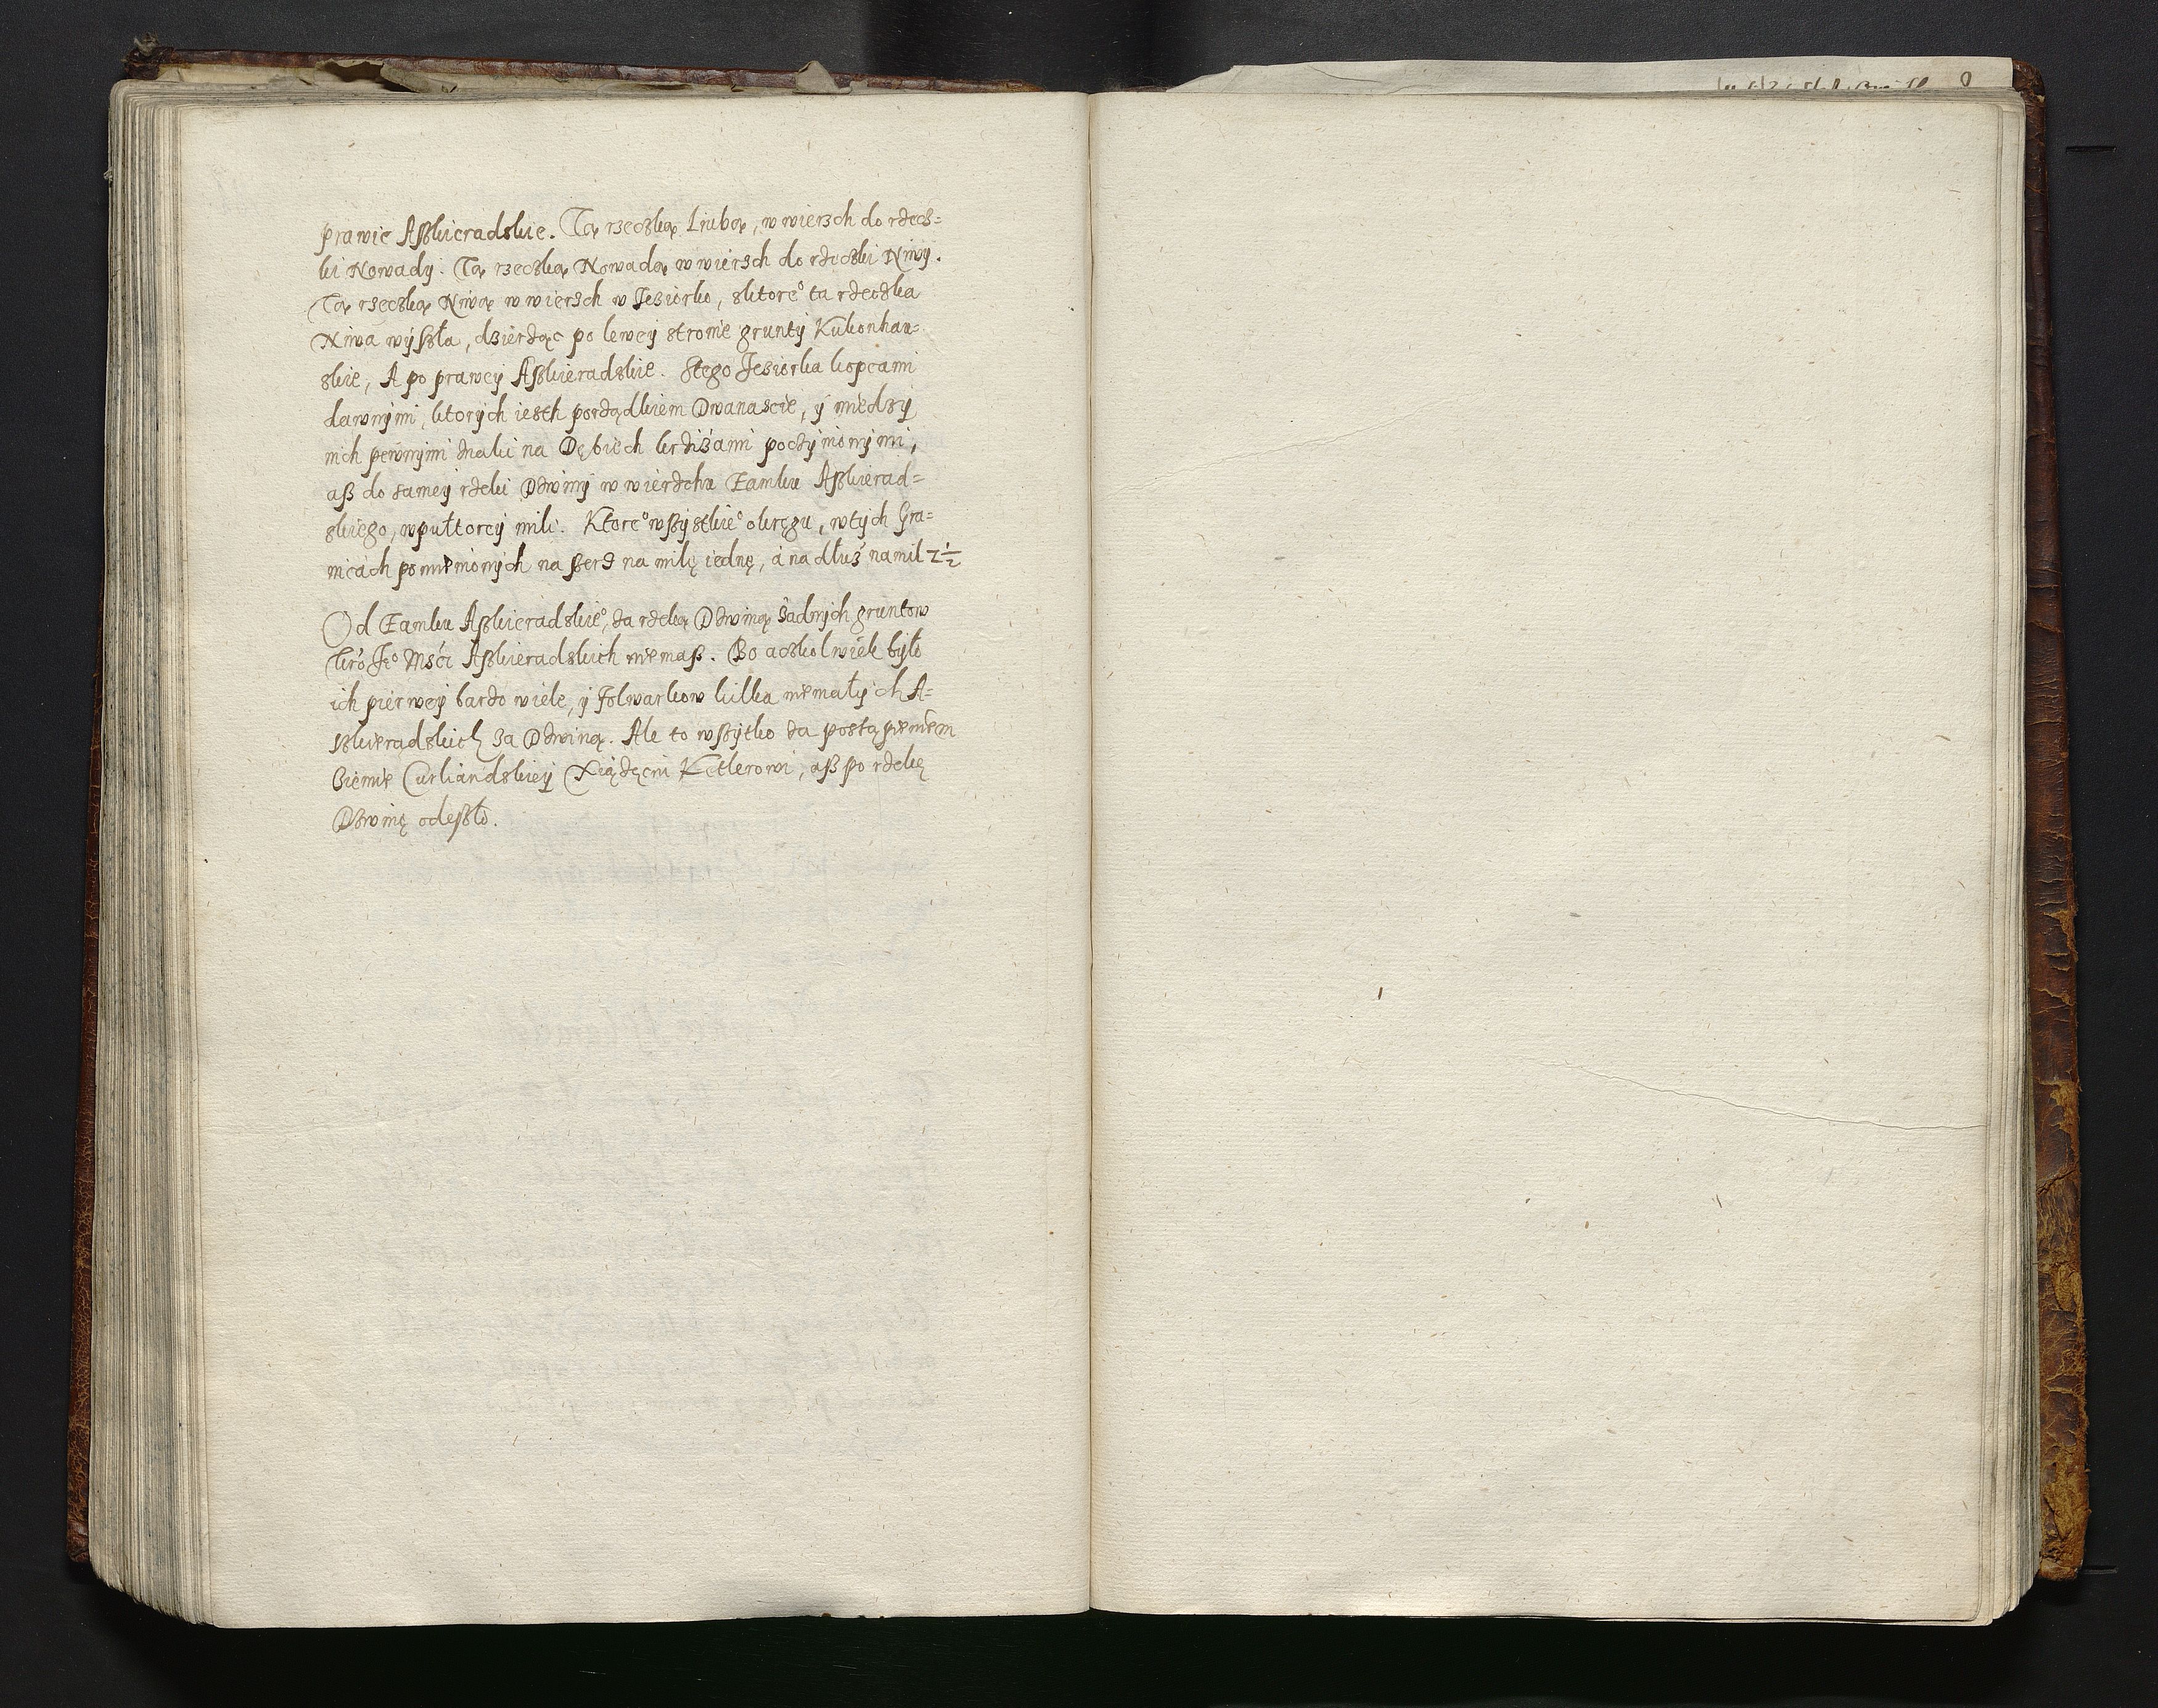 prawie Asskieradskie. Tą rzeczką Liubą, w wierzch do rzecz=
ki Nowady. Tą rzeczką Nowadą w wierzch do rzeczki Niwy.
Tą rzeczką Niwą w wierzch w Jeziorko, sktore° ta rzeczka
Niwa wyszła, dzierżąc po lewey stronie grunty Kukonhau=
skie, A po prawey Asskieradskie. Stego Jeziorka kopcami
dawnymi, ktorych iesth porządkiem Dwanascie, y miedzy
nich pewnymi znaki na Dębiech krziżami poczynionymi,
asz do samey rzeki Dzwiny w wierzchu Zamku Asskierad=
skiego, wpułtorey mili. Ktore° wszystkie° okręgu, wtych Gra=
nicach pomienionych na sserz na milę iednę, á na dłuż na mil 2 1/2
Od Zamku Asskieradskie°, za rzeką Dzwiną żadnych gruntow
kro̍ Je° Mści Asskieradskich niemasz. Bo aczkolwiek było
ich pierwey bardo wiele, y folwarkow kilka niemałych A=
sskieradskich za Dzwiną. Ale to wszytko za postąpieniem
Ziemie Curliandskiey Xiążęciu Ketlerowi, asz po rzekę
Dzwinę odeszło.